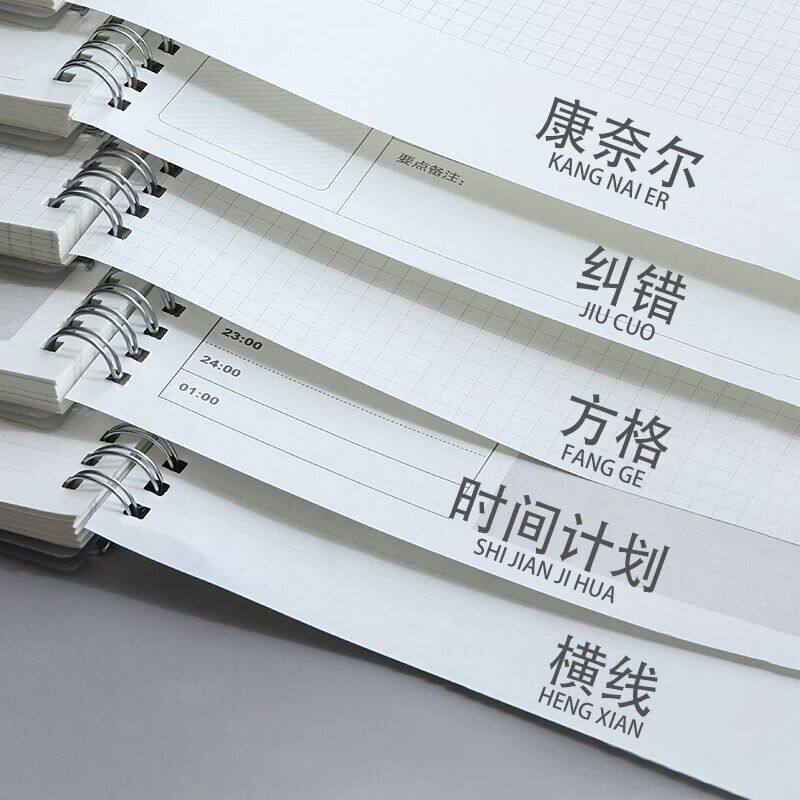 康奈尔
KANG NAI ER
要点备注：
纠错
JIU CUO
方格
FANG GE
23:00
24:00
01:00
时间计划
SHI JIAN JI HUA
横线
HENG XIAN